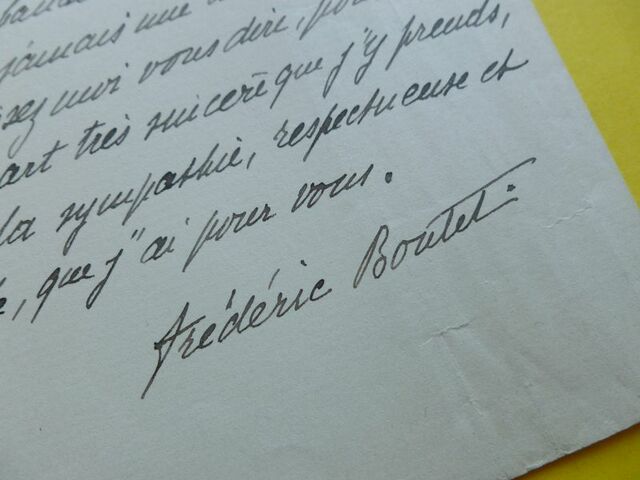 jamais une
moi vous dire, pou
art très sincère que j'y prends,
la sympathie, respectueuse et
, que j'ai pour vous.
Frédéric Boutet.